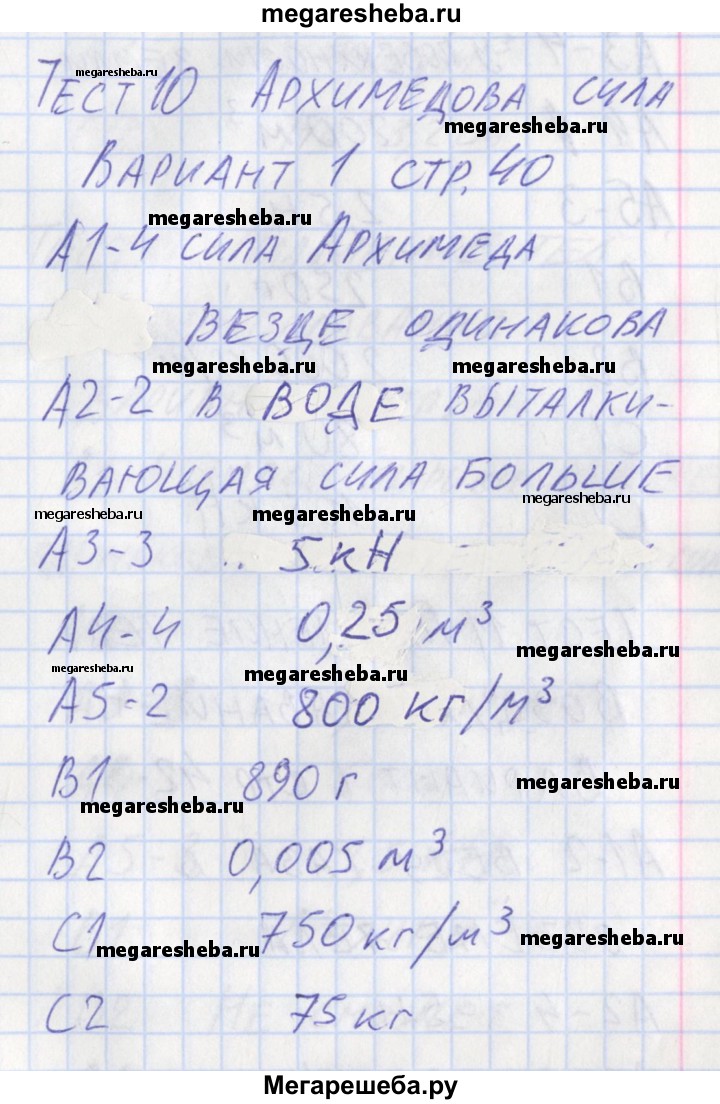 megaresheba.ru
Тест 10 Архимедова сила
megaresheba.ru
megaresheba.ru
Вариант 1 стр. 40
megaresheba.ru
А1-4 сила Архимеда
везде одинакова
megaresheba.ru
megaresheba.ru
А2-2 в воде выталки-
вающая сила больше
megaresheba.ru
megaresheba.ru
megaresheba.ru
А3-3 5 кН
А4-4 0,25 м³
megaresheba.ru
megaresheba.ru
megaresheba.ru
А5-2 800 кг/м³
В1 890 г
megaresheba.ru
megaresheba.ru
В2 0,005 м³
С1 750 кг/м³
megaresheba.ru
megaresheba.ru
С2 75 кг
Мегарешеба.ру